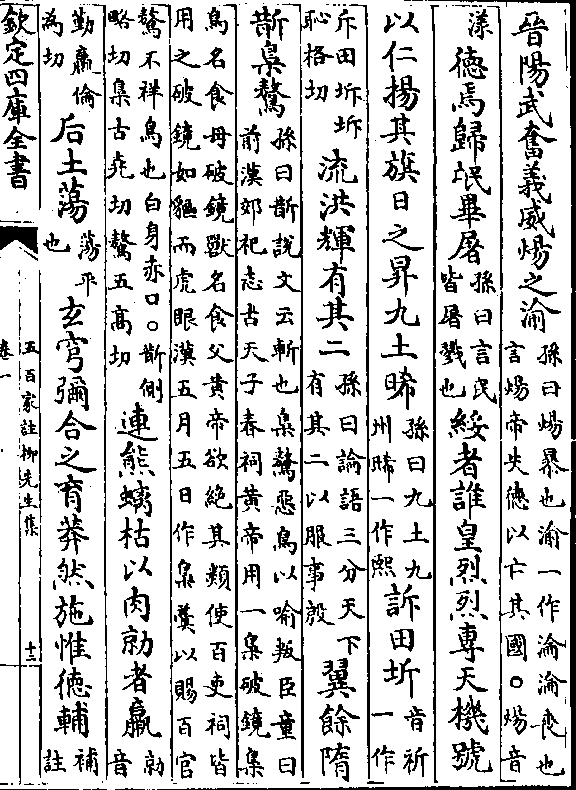 晉陽武奮義威煬之渝孫曰煬暴也渝一作淪淪喪也言煬帝失德以亡其國○煬音
漾德焉歸氓畢屠孫曰言民皆屠戮也綏者誰皇烈烈專天機號
以仁揚其旗日之昇九土晞孫曰九土九州晞一作熙訴田圻音祈一作
斥田圻圻恥格切流洪輝有其二孫曰論語三分天下有其二以服事殷翼餘隋
斮梟驁孫曰斮說文云斬也梟驁惡鳥以喻叛臣童曰前漢郊祀志古天子春祠黃帝用一梟破鏡梟
鳥名食母破鏡獸名食父黃帝欲絕其類使百吏祠皆用之破鏡如貙而虎眼漢五月五日作梟羹以賜百官
驁不祥鳥也白身赤口○斮側略切梟古堯切驁五高切連熊螭枯以肉勍者羸勍音
勤羸倫為切后土蕩蕩平也玄穹彌合之育莽然施惟德輔補註
欽定四庫全書
五百家註柳先生集
卷一
十三